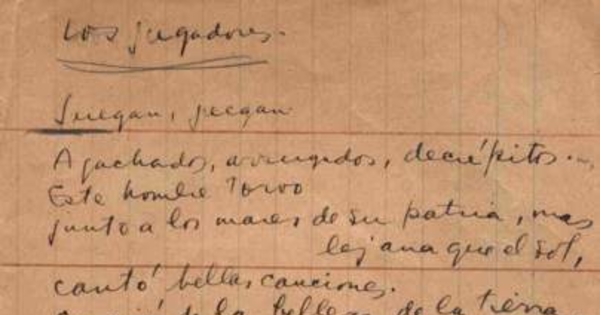 Los jugadores.
Juegan, juegan
Agachados, arrugados, decrépitos..
Este hombre torvo
junto a los mares de su patria, mas
lejana que el sol,
cantó bellas canciones.
de la belleza de la tierra